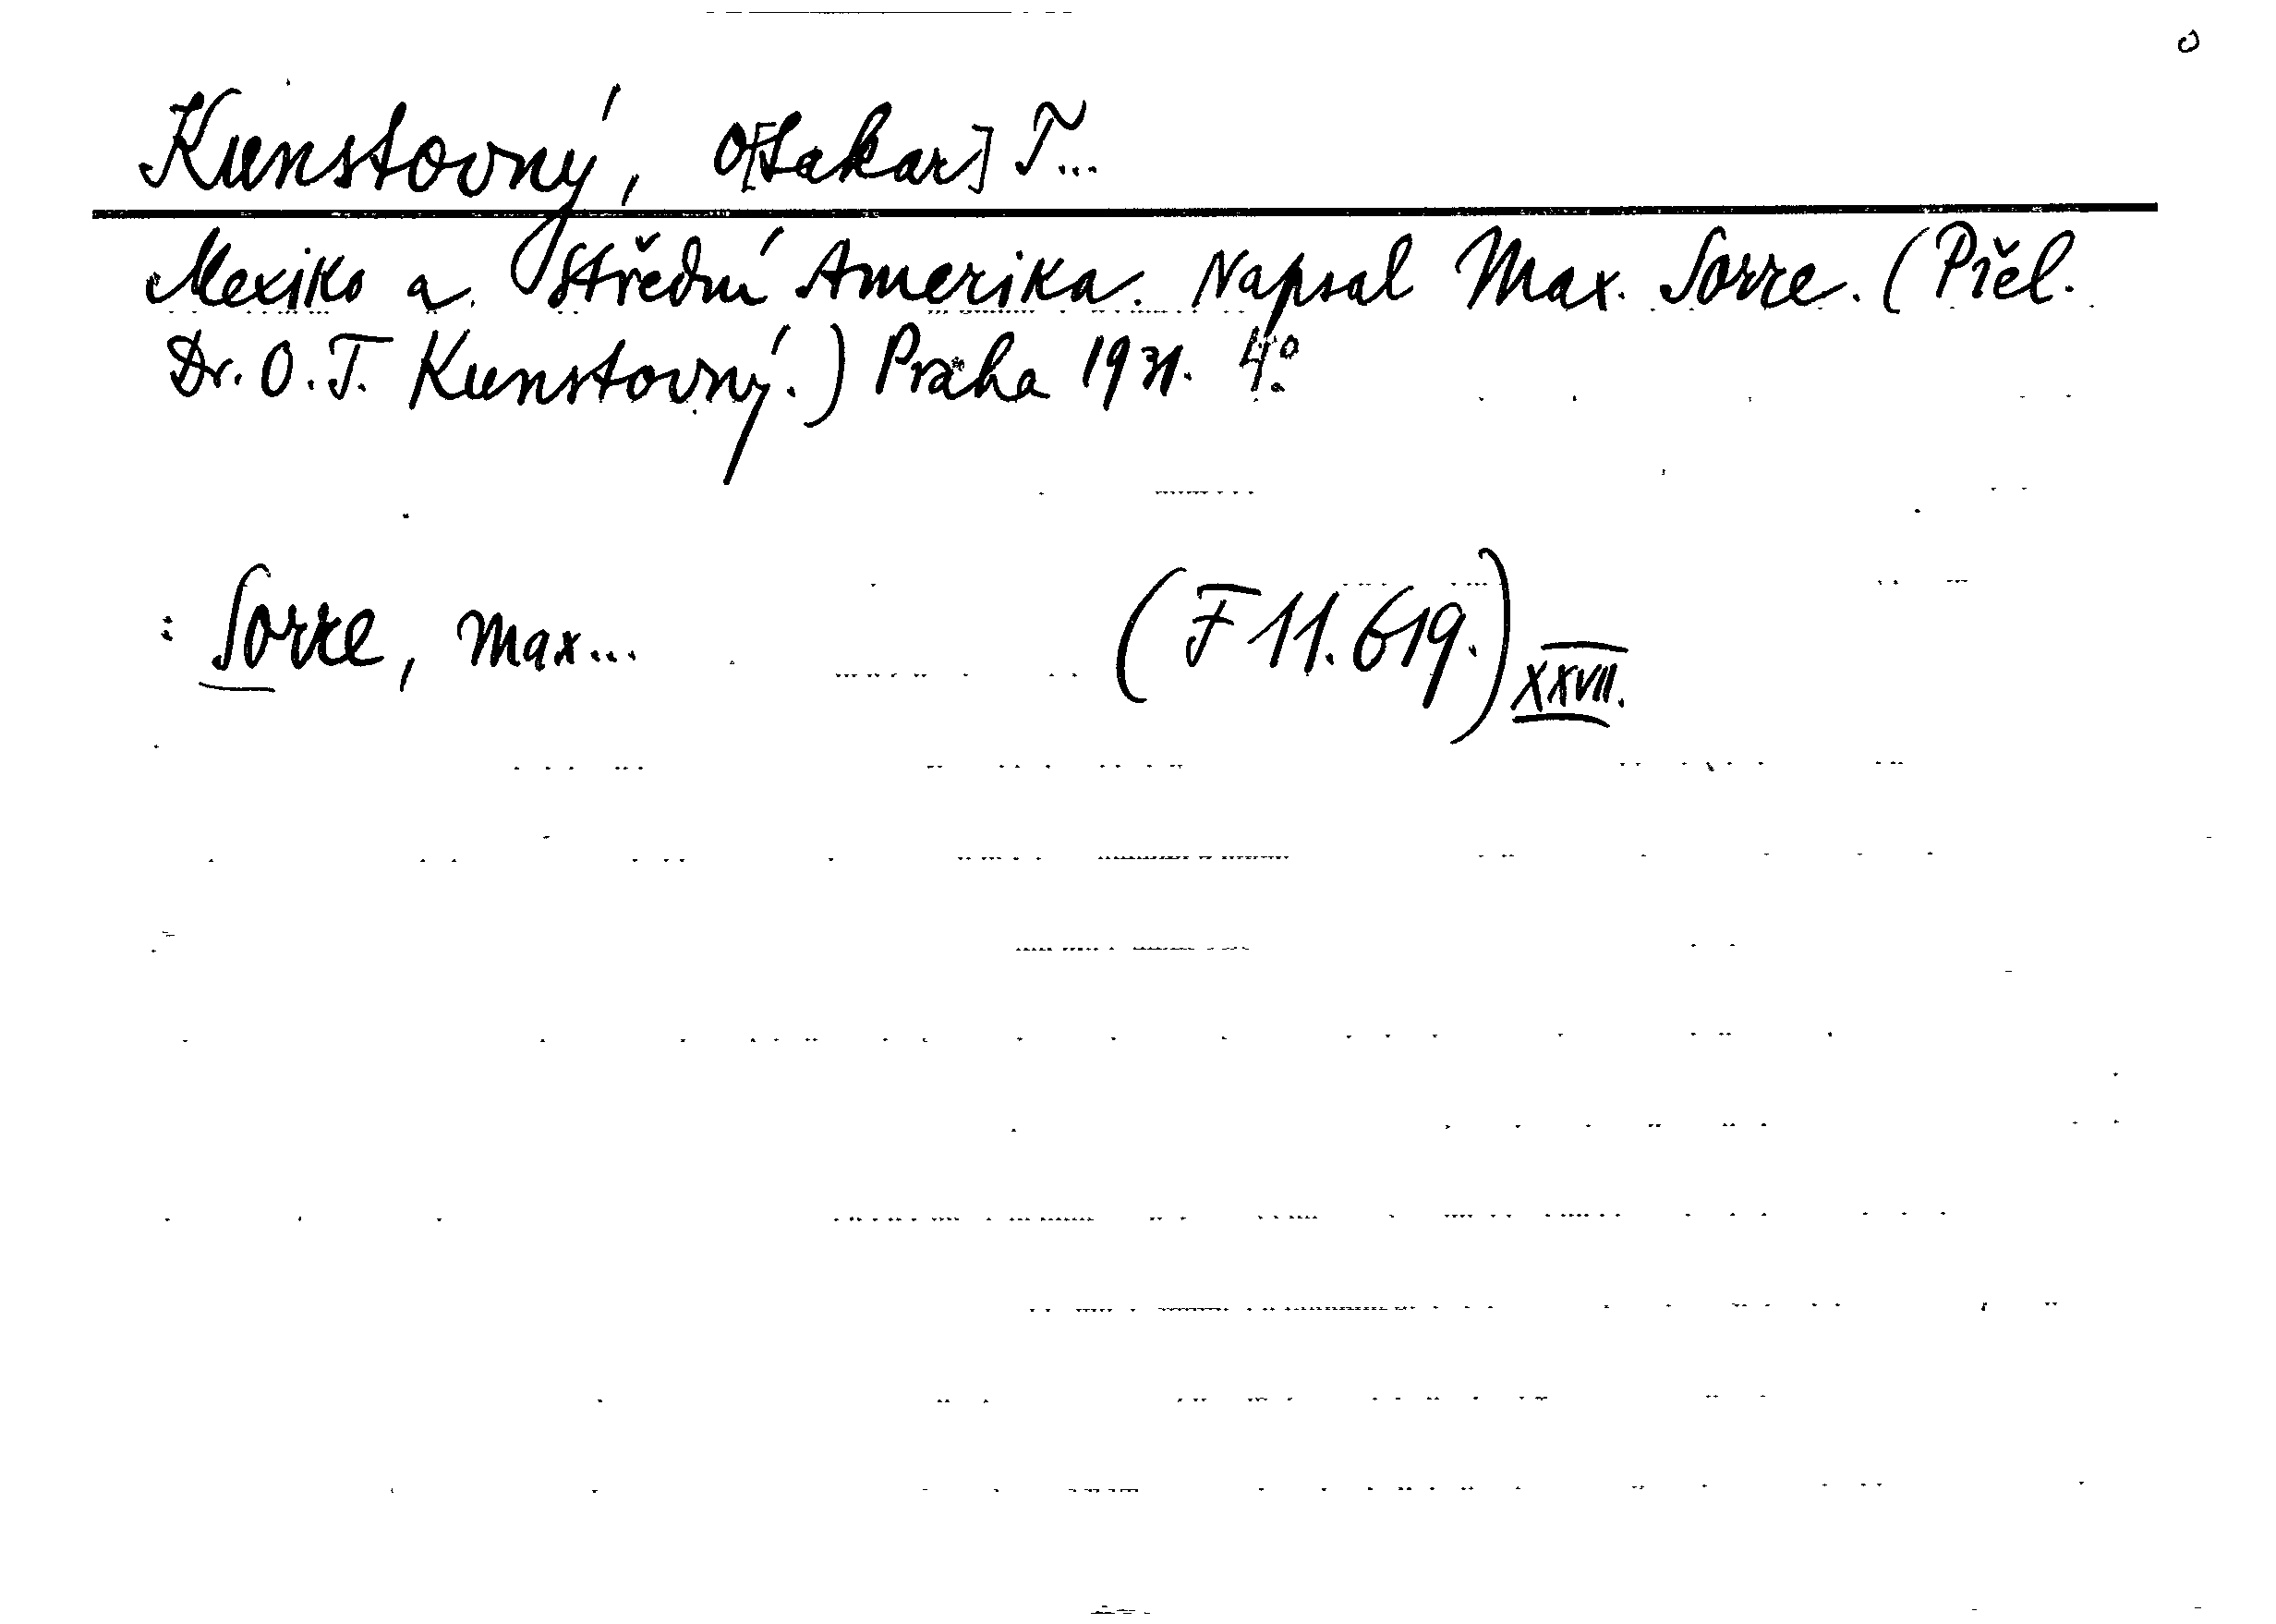 Kunstovný, O[takar] T...
Mexiko a Střední Amerika. Napsal Max. Sorre. (Přel.
Dr. O. T. Kunstovný.) Praha 1931. 4°.
: Sorre, Max... (F 11.619.) XXVII.